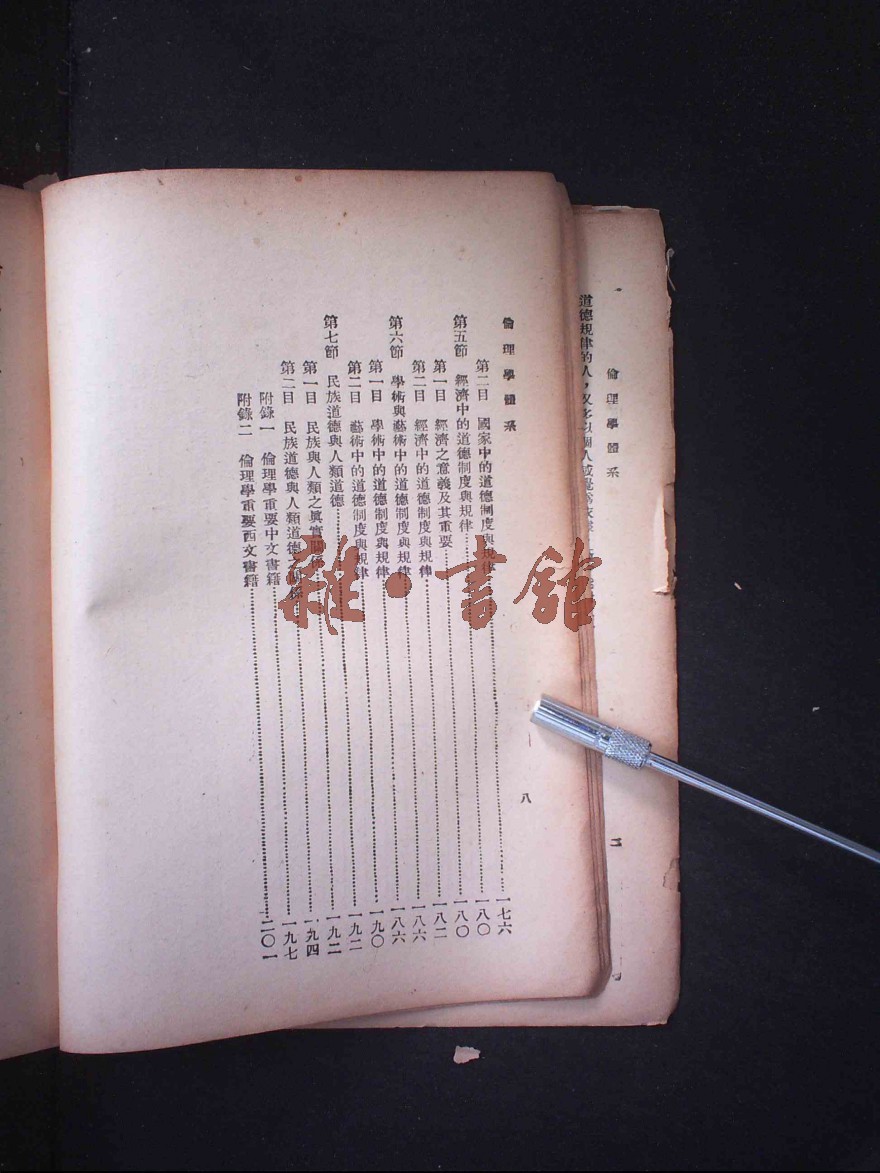 倫理學體系
八
第二目 國家中的道德制度與規律……一七六
第五節 經濟中的道德制度與規律……一八〇
第一目 經濟之意義及其重要……一八〇
第二目 經濟中的道德制度與規律……一八二
第六節 學術與藝術中的道德制度與規律……一八六
第一目 學術中的道德制度與規律……一八六
第二目 藝術中的道德制度與規律……一九〇
第七節 民族道德與人類道德……一九二
第一目 民族與人類之眞實關係……一九二
第二目 民族道德與人類道德之關係……一九四
附錄一 倫理學重要中文書籍……一九七
附錄二 倫理學重要西文書籍……二〇一
倫理學體系
二
道德規律的人，又多以個人
雜·書館